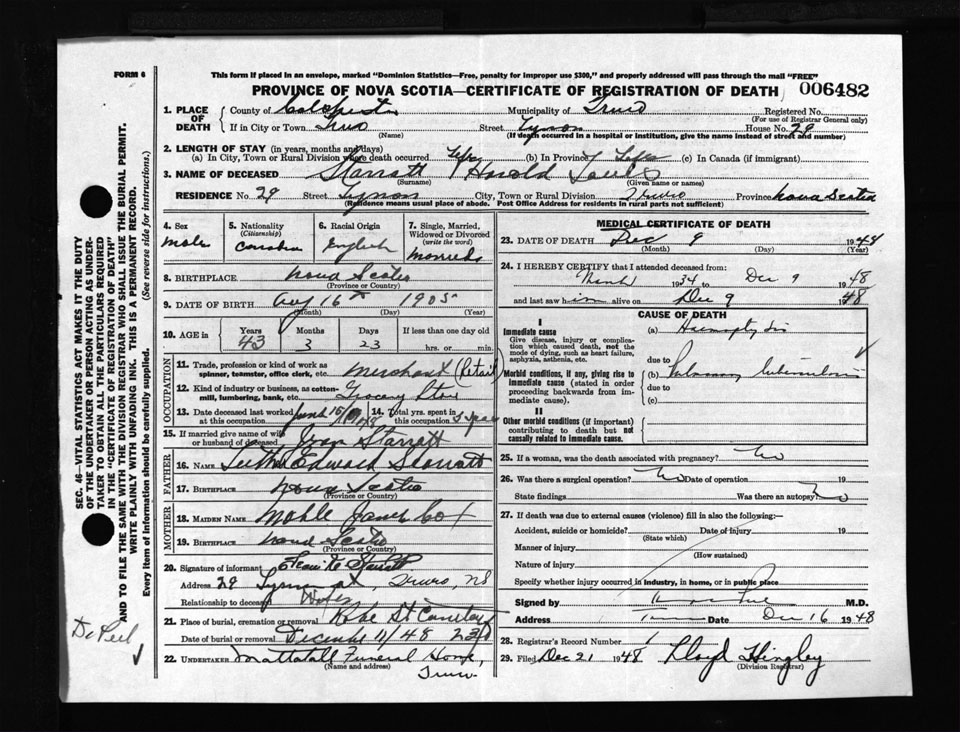 FORM 6
This form if placed in an envelope, marked "Dominion Statistics—Free, penalty for improper use $300," and properly addressed will pass through the mail "FREE"
PROVINCE OF NOVA SCOTIA—CERTIFICATE OF REGISTRATION OF DEATH 006482
1. PLACE OF DEATH County of Colchester Municipality of Truro Registered No.
(For use of Registrar General only)
If in City or Town Truro Street House No. 29
(Name) (If death occurred in a hospital or institution, give the name instead of street and number)
2. LENGTH OF STAY (in years, months and days)
(a) In City, Town or Rural Division where death occurred Life (b) In Province Life (c) In Canada (if immigrant)
3. NAME OF DECEASED Starratt Harold
(Surname) (Given name or names)
RESIDENCE No. 29 Street City, Town or Rural Division Truro Province Nova Scotia
(Residence means usual place of abode. Post Office Address for residents in rural parts not sufficient)
4. Sex Male
5. Nationality (Citizenship) Canadian
6. Racial Origin English
7. Single, Married, Widowed or Divorced (write the word) Married
8. BIRTHPLACE Nova Scotia
(Province or Country)
9. DATE OF BIRTH Aug 16th 1905
(Month) (Day) (Year)
10. AGE in Years 43 Months 3 Days 23 If less than one day
hrs. or min.
OCCUPATION
11. Trade, profession or kind of work as spinner, teamster, office clerk, etc. Merchant (Retail)
12. Kind of industry or business, as cotton-mill, lumbering, bank, etc. Grocery Store
13. Date deceased last worked at this occupation June 15/ 1948 14. Total yrs. spent in this occupation
15. If married give name of wife or husband of deceased Starratt
FATHER
16. NAME Edward Starratt
17. BIRTHPLACE Nova Scotia
(Province or Country)
MOTHER
18. MAIDEN NAME Cox
19. BIRTHPLACE Nova Scotia
(Province or Country)
20. Signature of informant Starratt
Address 29 St, Truro, NS
Relationship to deceased Wife
21. Place of burial, cremation or removal St Cemetery
Date of burial or removal December 11/48
22. UNDERTAKER Mattatall Funeral Home,
(Name and address)
Truro
MEDICAL CERTIFICATE OF DEATH
23. DATE OF DEATH Dec 9 1948
(Month) (Day) (Year)
24. I HEREBY CERTIFY that I attended deceased from:
1934 to Dec 9 1948
and last saw him alive on Dec 9 1948
CAUSE OF DEATH
I
Immediate cause
Give disease, injury or complication which caused death, not the mode of dying, such as heart failure, asphyxia, asthenia, etc.
(a) Haemoptysis
due to
Morbid conditions, if any, giving rise to immediate cause (stated in order proceeding backwards from immediate cause).
(b) Pulmonary tuberculosis
due to
(c)
II
Other morbid conditions (if important) contributing to death but not causally related to immediate cause.
25. If a woman, was the death associated with pregnancy? No
26. Was there a surgical operation? No Date of operation 19
State findings Was there an autopsy? No
27. If death was due to external causes (violence) fill in also the following:—
Accident, suicide or homicide? Date of injury 19
(State which)
Manner of injury
(How sustained)
Nature of injury
Specify whether injury occurred in industry, in home, or in public place
Signed by M.D.
Address Truro Date Dec 16 1948
28. Registrar's Record Number 1
29. Filed Dec 21 1948 Lloyd Hingley
(Division Registrar)
SEC. 46—VITAL STATISTICS ACT MAKES IT THE DUTY
OF THE UNDERTAKER OR PERSON ACTING AS UNDER-
TAKER TO OBTAIN ALL THE PARTICULARS REQUIRED
IN THE "CERTIFICATE OF REGISTRATION OF DEATH"
AND TO FILE THE SAME WITH THE DIVISION REGISTRAR WHO SHALL ISSUE THE BURIAL PERMIT.
WRITE PLAINLY WITH UNFADING INK. THIS IS A PERMANENT RECORD.
Every item of Information should be carefully supplied. (See reverse side for instructions.)